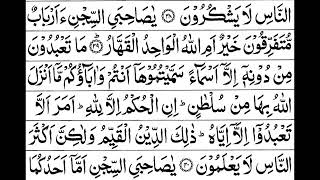 النَّاسِ لَا يَشْكُرُوْنَ ﴿٣٨﴾ يٰصَاحِبَيِ السِّجْنِ ءَاَرْبَابٌ
مُّتَفَرِّقُوْنَ خَيْرٌ اَمِ اللّٰهُ الْوَاحِدُ الْقَهَّارُ ﴿٣٩﴾ مَا تَعْبُدُوْنَ
مِنْ دُوْنِهٖٓ اِلَّآ اَسْمَآءً سَمَّيْتُمُوْهَآ اَنْتُمْ وَاٰبَآؤُكُمْ مَّآ اَنْزَلَ
اللّٰهُ بِهَا مِنْ سُلْطٰنٍ ؕ اِنِ الْحُكْمُ اِلَّا لِلّٰهِ ؕ اَمَرَ اَلَّا
تَعْبُدُوْٓا اِلَّآ اِيَّاهُ ؕ ذٰلِكَ الدِّيْنُ الْقَيِّمُ وَلٰكِنَّ اَكْثَرَ
النَّاسِ لَا يَعْلَمُوْنَ ﴿٤٠﴾ يٰصَاحِبَيِ السِّجْنِ اَمَّآ اَحَدُكُمَا